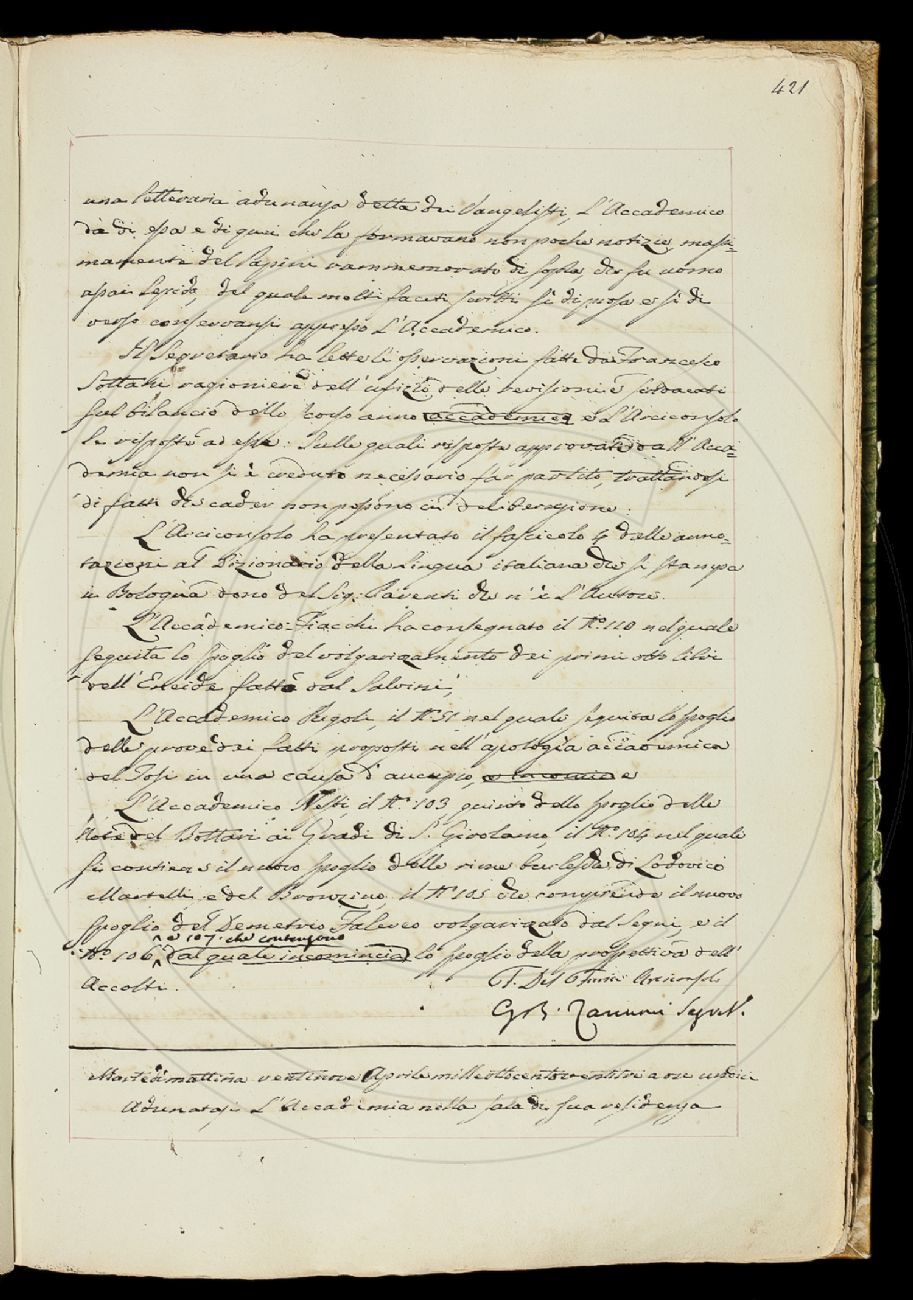 421
una letteraria adunanza detta dei Vangelisti, L'Accademico
dà di essa e di quei che la formavano non poche notizie, massi=
mamente del Papini rammemorato di sopra che fu uomo
assai lepido, del quale molti faceti scritti sì di prosa e sì di
verso conservansi appresso L'Accademico.
Il Segretario ha lette le osservazioni fatte da Francesco
Soldani ragioniere dell'ufizio delle revisioni e sindacati
sul bilancio dello scorso anno accademico e L'Arciconsolo
le risposte ad esse. Sulle quali risposte approvate dall'Acca=
demia non si è creduto necessario far partito, trattandosi
di fatti che cader non possono in deliberazione.
L'Arciconsolo ha presentato il fascicolo 4 delle anno=
tazioni al Dizionario della Lingua italiana che si stampa
in Bologna dono del Sig. Parenti che n'è L'Autore.
L'Accademico Fiacchi ha consegnato il N.o 110 nel quale
seguita lo spoglio del volgarizzamento dei primi otto libri
dell'Eneide fatto dal Salvini;
L'Accademico Rigoli, il N.o 51 nel quale seguita lo spoglio
delle prove dei fatti proposti nell'apologia accademica
del Tosi in una causa d'aucupio, e
L'Accademico Nesti, il N.o 103 quinto dello spoglio delle
Note del Bottari ai Gradi di S. Girolamo, il N.o 104 nel quale
si contiene il nuovo spoglio delle rime burlesche di Lodovico
Martelli, e del Bronzino, il N.o 105 che comprende il nuovo
spoglio del Demetrio Falereo volgarizzato dal Segni, e il
e 107. che contengono
N.o 106 dal quale incomincia lo spoglio della prospettiva dell'
Accolti.
G.B. Zannoni Segret.
Martedì mattina ventinove Aprile milleottocentoventitre a ore undici
Adunatasi L'Accademia nella sala di sua residenza